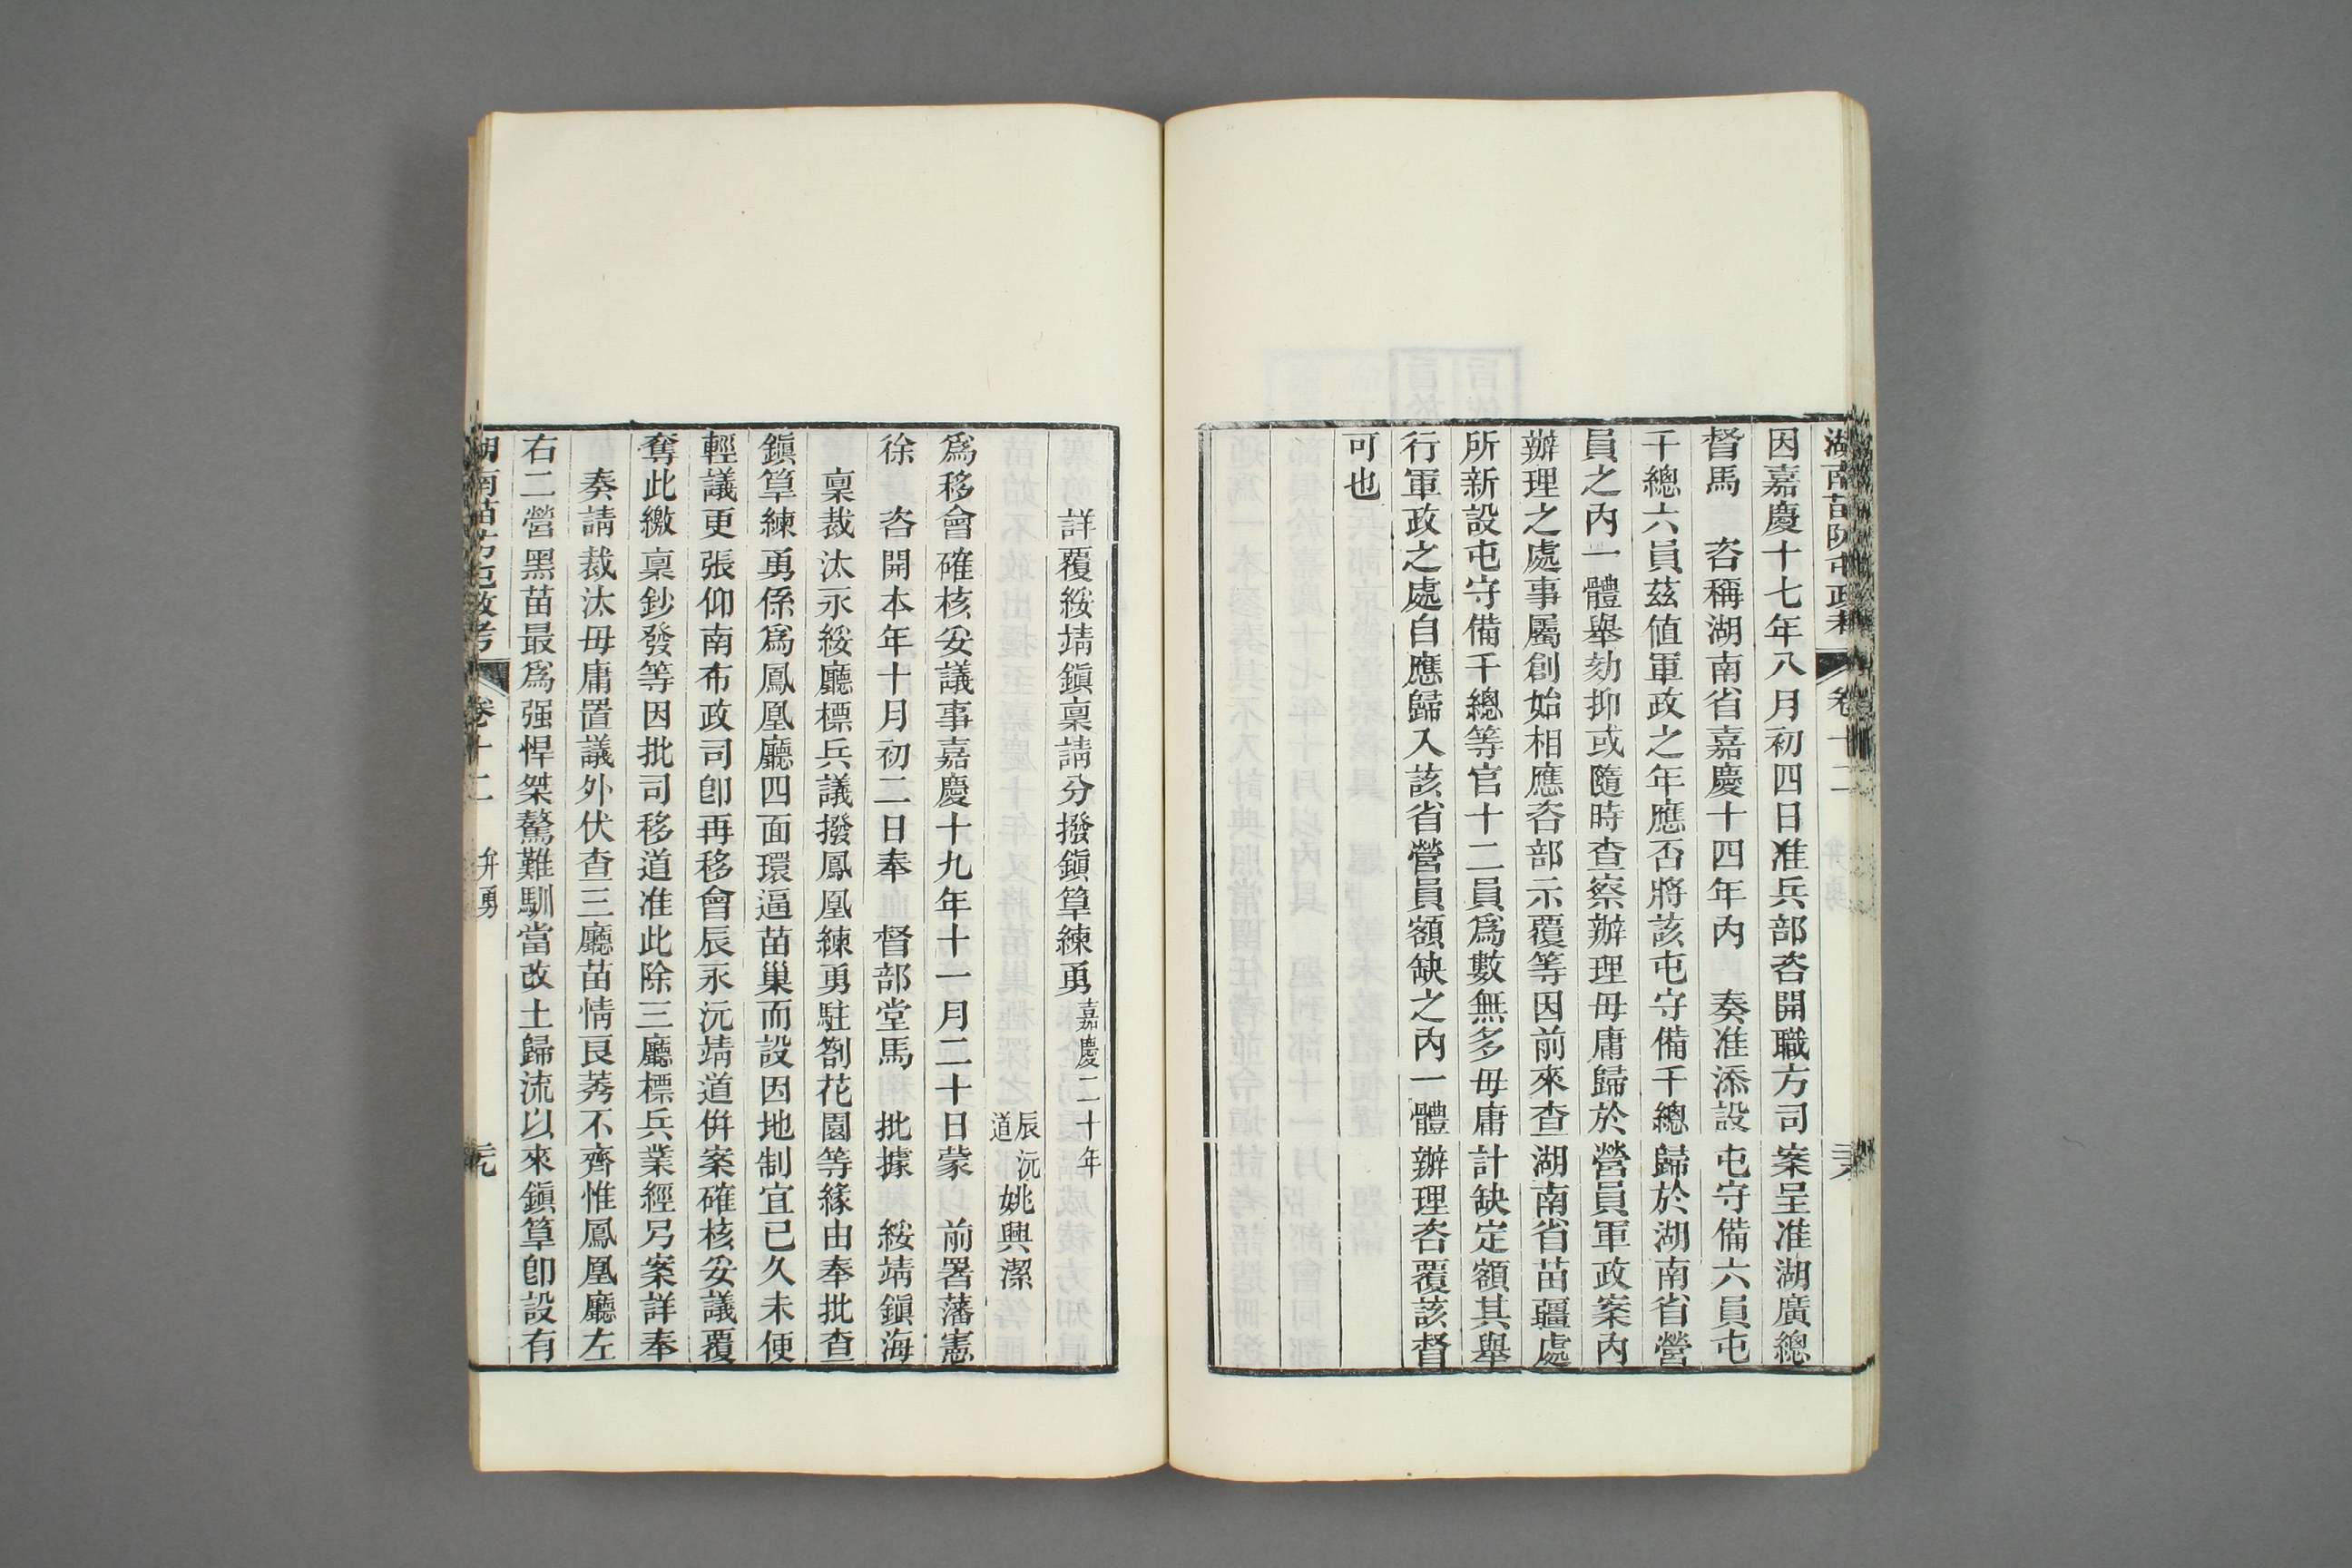 湖南苗防屯政考 卷十二
因嘉慶十七年八月初四日准兵部咨開職方司案呈准湖廣總
督馬 咨稱湖南省嘉慶十四年內 奏准添設屯守備六員屯
千總六員茲值軍政之年應否將該屯守備千總歸於湖南省營
員之內一體舉劾抑或隨時查察辦理毋庸歸於營員軍政案內
辦理之處事屬創始相應咨部示覆等因前來查湖南省苗疆處
所新設屯守備千總等官十二員爲數無多毋庸計缺定額其舉
行軍政之處自應歸入該省營員額缺之內一體辦理咨覆該督
可也
詳覆綏靖鎭稟請分撥鎭筸練勇嘉慶二十年
辰沅道姚興潔
爲移會確核妥議事嘉慶十九年十一月二十日蒙 前署藩憲
徐 咨開本年十月初二日奉 督部堂馬 批據 綏靖鎭海
稟裁汰永綏廳標兵議撥鳳凰練勇駐劄花園等緣由奉批查
鎭筸練勇係爲鳳凰廳四面環逼苗巢而設因地制宜已久未便
輕議更張仰南布政司卽再移會辰永沅靖道倂案確核妥議覆
奪此繳稟鈔發等因批司移道准此除三廳標兵業經另案詳奉
奏請裁汰毋庸置議外伏查三廳苗情良莠不齊惟鳳凰廳左
右二營黑苗最爲强悍桀驁難馴當改土歸流以來鎭筸卽設有
湖南苗防屯政考 卷十二 弁勇 元